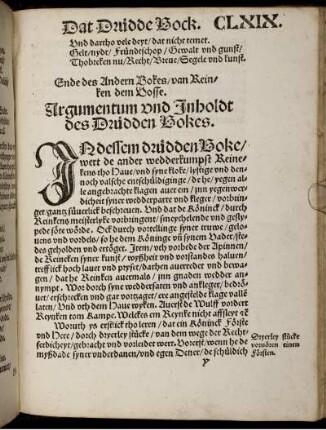 Dat Drüdde Bock. CLXIX.
Vnd dartho vele deyt / dat nicht temet.
Gelt / nydt / Fründtschop / Gewalt vnd gunst /
Thobreken nu / Recht / Breue / Segele vnd kunst.
Ende des Andern Bokes / van Rein-
ken dem Vosse.
Argumentum vnd Inholdt
des Drüdden Bokes.
IN dessem drüdden Boke /
wert de ander wedderkumpst Reine-
kens tho Haue / vnd syne kloke / lystige vnd den-
noch valsche entschüldiginge / de he / yegen al-
le angebrachte klagen auer ein / jnn yegenwer-
dicheit syner wedderparte vnd kleger / vorbrin-
get gantz süuerlick beschreuen. Vnd dat de Köninck / dorch
Reinkens meisterlyke vorbringent / smeychelende vnd geslyp-
pede söte wörde. Ock dorch vortellinge syner truwe / gelou-
uens vnd vordels / so he dem Köninge vñ synem Vader / ste-
des geholden vnd ertöget. Item / veh vorbede der Apinnen /
de Reineken syner kunst / wyßheit vnd vorstandes haluen /
trefflick hoch lauet vnd pryset / darhen auerredet vnd bewa-
gen / dat he Reinken auermals / jnn gnaden wedder an-
nympt. Wor dorch syne weddersaten vnd ankleger / bedrö-
uet / erschrecken vnd gar vortzaget / ere angestelde klage vallē
laten / Vnd veh dem Haue wyken. Auerst de Wulff vordert
Reynken tom Kampe. Welckes em Reynke nicht affsleyt ꝛc̄
Woruth ys erstlick tho leren / dat ein Köninck Förste
vnd Here / dorch dryerley stücke / van dem wege der Recht-
ferdicheyt / gebracht vnd vorleidet wert. Vorerst / wenn he de
myßdade syner vnderdanen / vnd egen Dener / de schüldich
Dryerley stücke
vorvören einen
Försten.
Y